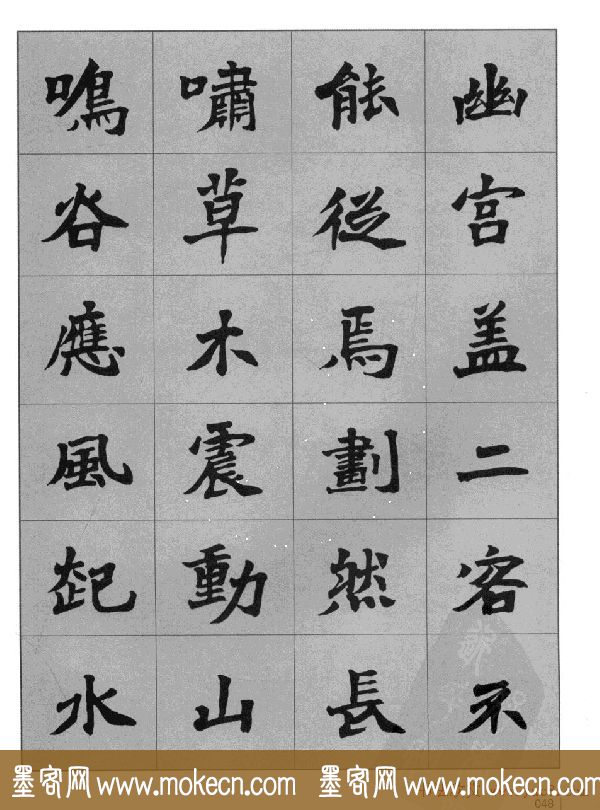 幽宫盖二客不
能從焉劃然長
嘯草木震動山
鳴谷應風起水
墨客网 www.mokecn.com 墨客网 www.mokecn.com
048